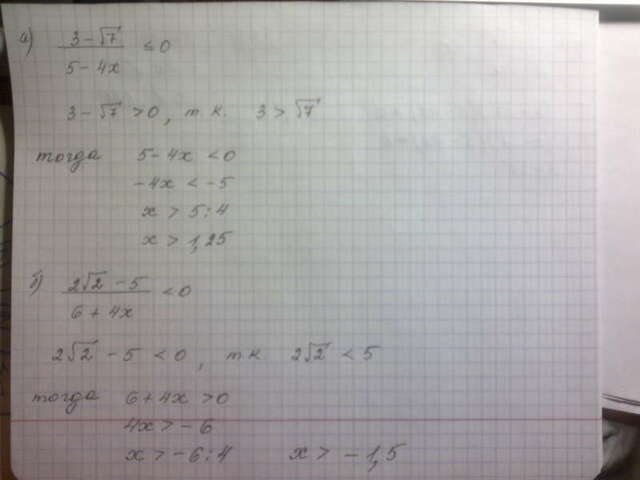 а) (3-√7)/(5-4x) ≤ 0
3-√7 > 0, т.к. 3 > √7
тогда 5-4x < 0
-4x < -5
x > 5:4
x > 1,25
б) (2√2-5)/(6+4x) < 0
2√2-5 < 0, т.к 2√2 < 5
тогда 6+4x > 0
4x > -6
x > -6:4 x > -1,5